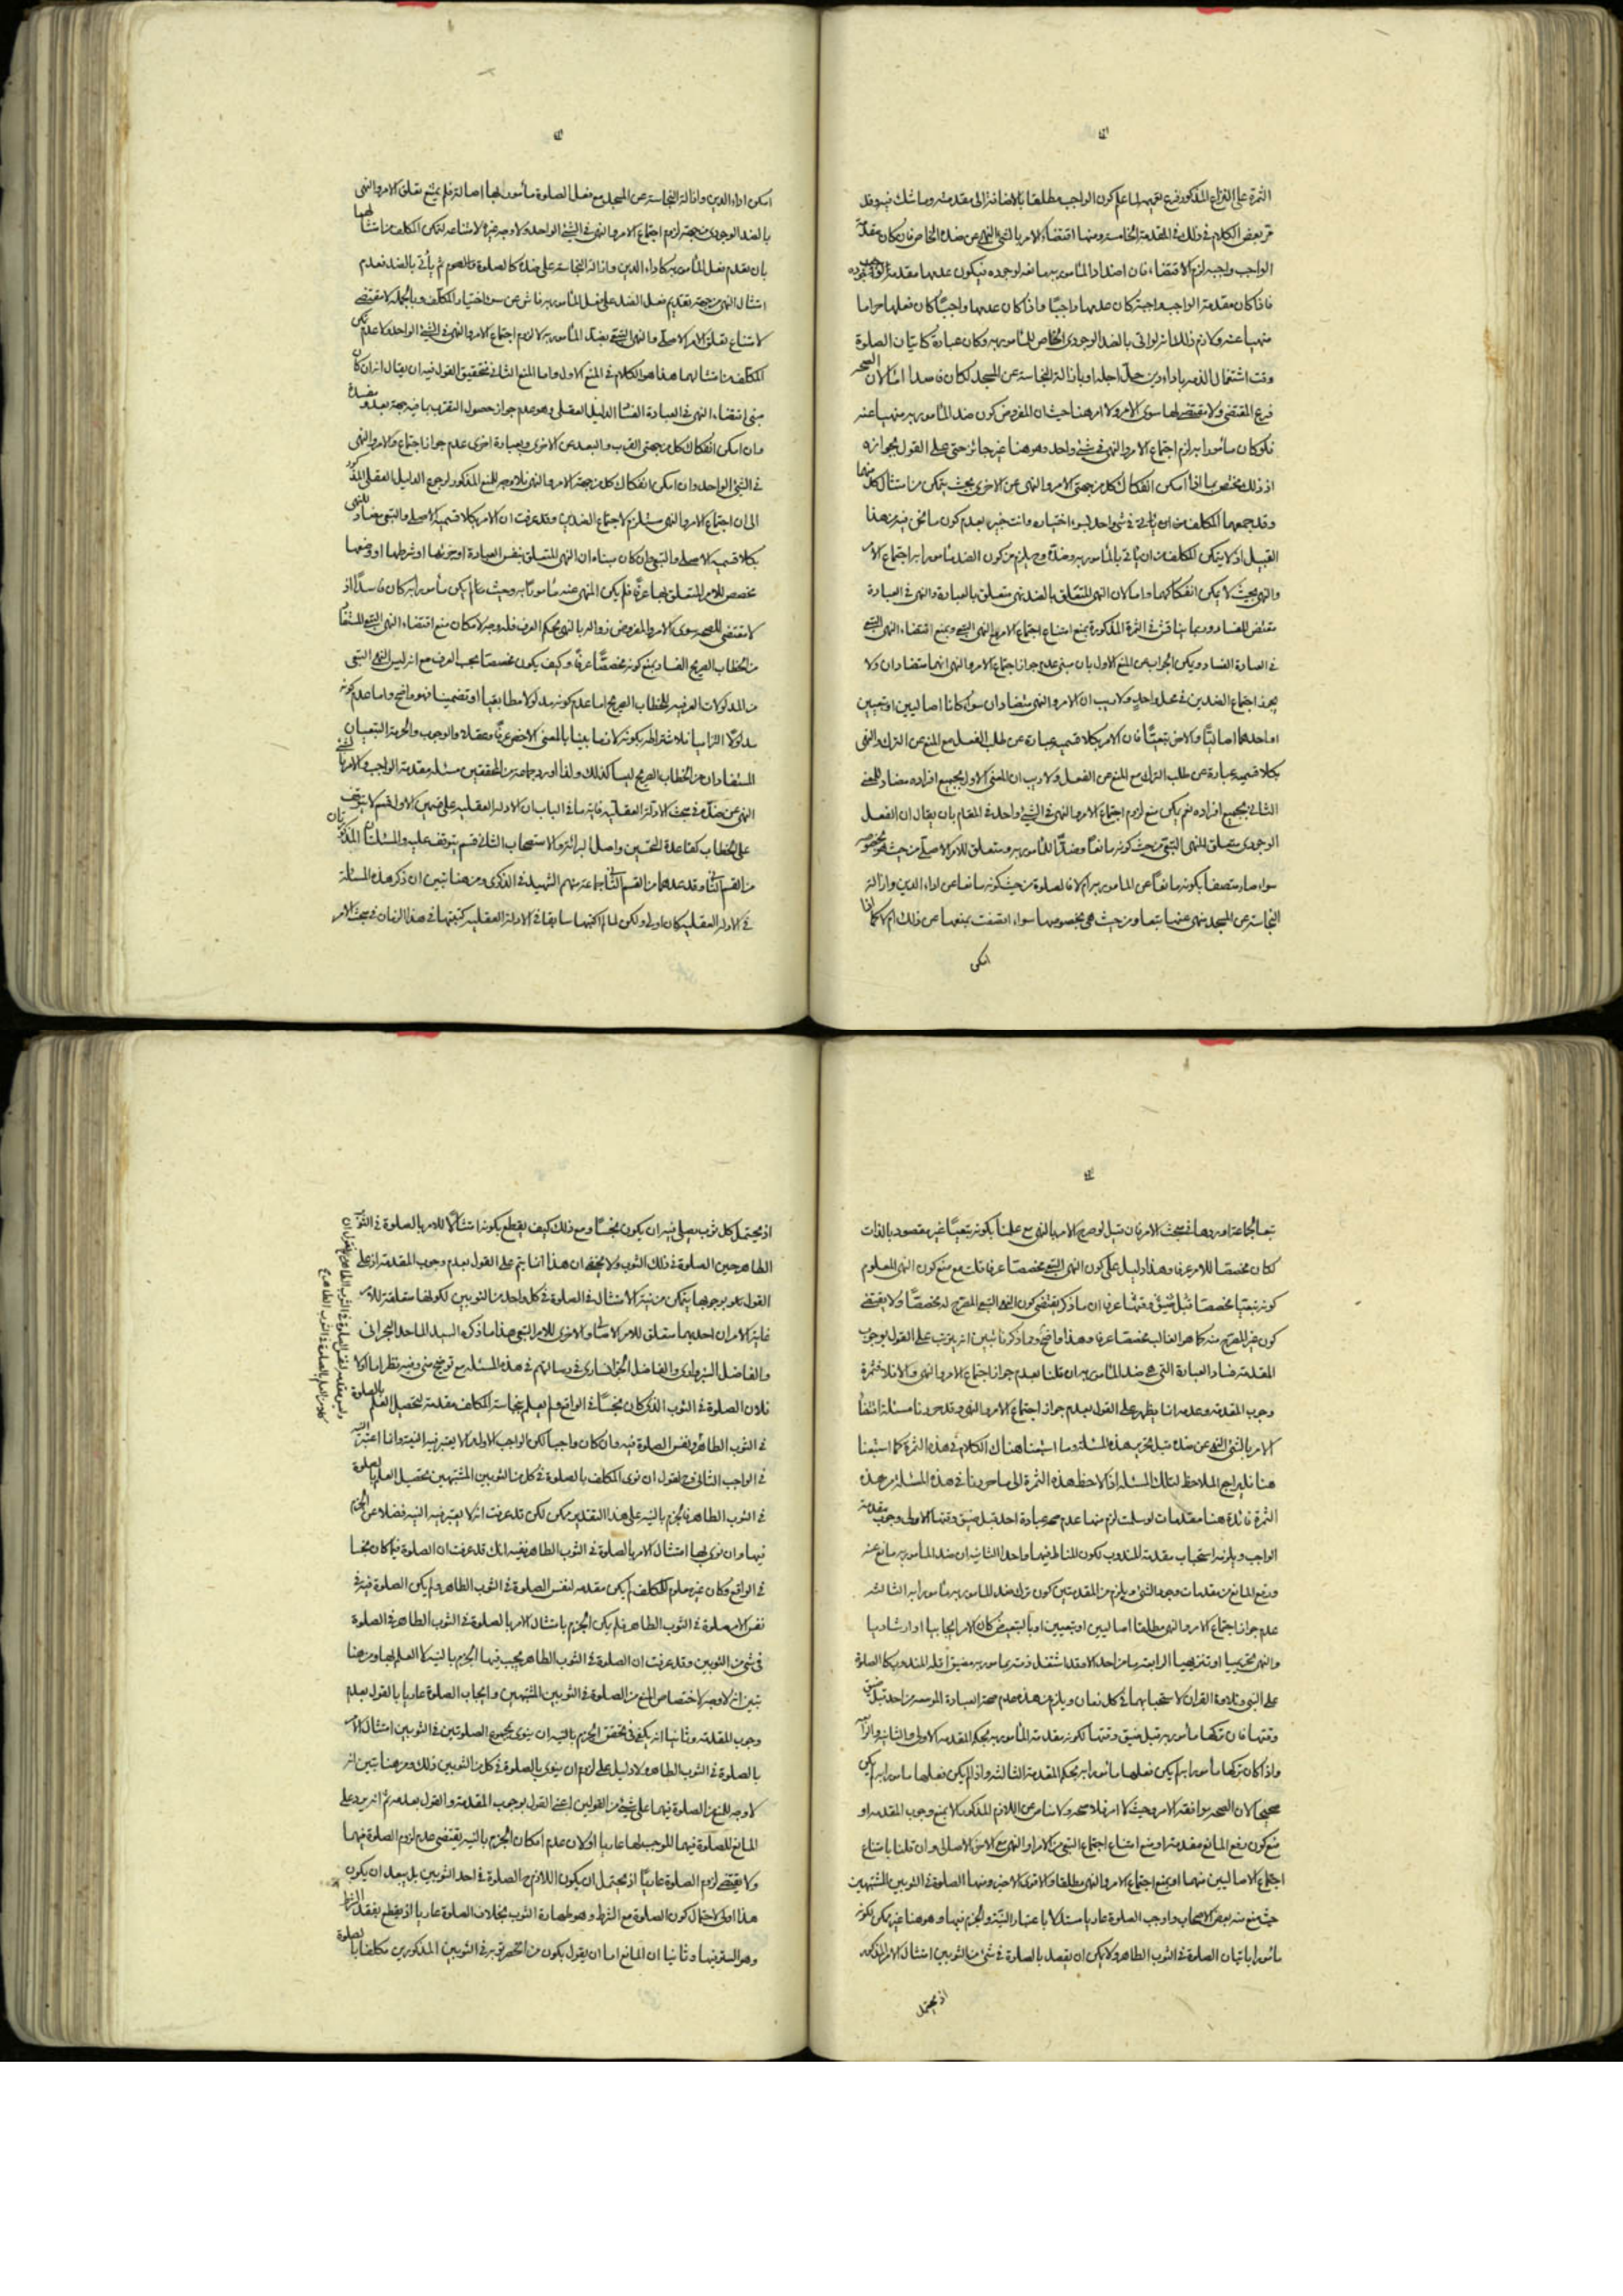 الثمرة على النزاع المذكور فرع لقيمه لما علم كون الواجب مطلقا بالاضافة الى مقدمته وما شك فيه وقد
مر بعض الكلام في ذلك في المقدمة الخامسة ومنها اقتضاء الامر بالشئ النهي عن ضده الخاص فان كان مقدمة
الواجب واجبه لزم الاقتضاء فان اضداد المأمور به مانعه لوجوده فيكون عدمها مقدمة لوجوده
فاذا كان مقدمة الواجب واجبة كان عدمها واجبا واذا كان عدمها واجبا كان فعلها حراما
منهيا عنه ولازم ذلك انه لو اتى بالضد الوجودي الخاص للمأمور به وكان عبادة كاتيان الصلوة
وقت اشتغال الذمه باداء دين حل اجله او بازالة النجاسة عن المسجد لكان فاسدا اما لان الصحه
فرع المقتضي ولا مقتضي لها سوى الامر ولا امر هنا حيث ان المفروض كون ضد المأمور به منهيا عنه
فلو كان مأمورا به لزم اجتماع الامر والنهي في شئ واحد وهو هنا غير جائز حتى على القول بجوازه
اذ ذلك مختص بما اذا امكن انفكاك كل من جهتي الامر والنهي عن الاخرى بحيث يتمكن من امتثال كل منهما
وقد جمعهما المكلف من ان ياتي في شئ واحد لسوء اختياره وانت خبير بعدم كون ما نحن فيه من هذا
القبيل اذ لا يتمكن المكلف من ان ياتي بالمأمور به وضده وح يلزم من كون الضد مأمورا به اجتماع الامر
والنهي بحيث لا يمكن انفكاكهما واما لان النهي المتعلق بالضد نهي متعلق بالعبادة والنهي في العبادة
مقتض للفساد وربما يناقش في الثمرة المذكورة بمنع امتناع اجتماع الامر مع النهي التبعي وبمنع اقتضاء النهي التبعي
في العبادة الفساد ويمكن الجواب عن المنع الاول بان مبنى عدم جواز اجتماع الامر والنهي انهما متضادان ولا
يجوز اجتماع الضدين في محل واحد ولا ريب ان الامر والنهي متضادان سواء كانا اصاليين او تبعيين
او احدهما اصاليا والاخر تبعيا فان الامر بكلا قسميه عبارة عن طلب الفعل مع المنع عن الترك والنهي
بكلا قسميه عبارة عن طلب الترك مع المنع عن الفعل ولا ريب ان المعنى الاول بجميع افراده مضاد للمعنى
الثاني بجميع افراده نعم يمكن منع لزوم اجتماع الامر والنهي في الشئ واحد في المقام بان يقال ان الفعل
الوجودي متعلق للنهي التبعي من حيث كونه مانعا وضدا للمأمور به ومتعلق للامر الاصلي من حيث هو بخصوصه
سواء صار متصفا بكونه مانعا عن المأمور به ام لا فالصلوة من حيث كونه مانعا عن اداء الدين وازالة
النجاسة عن المسجد منهي عنها تبعا ومن حيث هي بخصوصها سواء اتصفت بمنعها عن ذلك ام لا كما اذا
امكن
امكن اداء الدين وازالة النجاسة عن المسجد مع فعل الصلوة مأمور بها اصالة فلم يمتنع تعلق الامر والنهي
بالضد الوجودي من جهة لزوم اجتماع الامر والنهي في الشئ الواحد ولا وجه غيره لامتناعه لتمكن المكلف من امتثالهما
بان يقدم فعل المأمور به كاداء الدين وازالة النجاسة على ضده كالصلوة والصوم ثم يأتي بالضد فعدم
امتثال النهي من جهة تقديم فعل الضد على فعل المأمور به ناش عن سوء اختيار المكلف وبالجمله لا مقتضي
لامتناع تعلق الامر الاصلي والنهي التبعي بضد المأمور به لا لزوم اجتماع الامر والنهي في الشئ الواحد ولا عدم تمكن
المكلف من امتثالهما هذا هو الكلام في المنع الاول واما المنع الثاني فتحقيق القول فيه ان يقال انه ان كان
مبنى اقتضاء النهي في العبادة الفساد الدليل العقلي وهو عدم جواز حصول التقرب بما فيه جهة بعد ومفسدة
وان امكن انفكاك كل من جهتي القرب والبعد عن الاخرى وبعبارة اخرى عدم جواز اجتماع الامر والنهي
في الشئ الواحد وان امكن انفكاك كل من جهة الامر والنهي فلا وجه للمنع المذكور لرجوع الدليل العقلي المذكور
الى ان اجتماع الامر والنهي مستلزم لاجتماع الضدين وقد عرفت ان الامر بكلا قسميه الاصلي والتبعي مضاد للنهي
بكلا قسميه الاصلي والتبعي وان كان مبناه ان النهي المتعلق بنفس العبادة او جزئها او شرطها او وصفها
مخصص للامر المتعلق بها عرفا فلم يكن المنهي عنه مأمورا به وحيث ما لم يكن مأمورا به كان فاسدا اذ
لا مقتضي للصحه سوى الامر والمفروض زواله بالنهي بحكم العرف فله وجه لامكان منع اقتضاء النهي التبعي المستفاد
من الخطاب الصريح الفساد بمنع كونه مخصصا عرفا وكيف يكون مخصصا بحسب العرف مع انه ليس النهي التبعي
من المدلولات العرفيه للخطاب الصريح اما عدم كونه مدلولا مطابقيا او تضمنيا فهو واضح واما عدم كونه
مدلولا التزاميا فلاشتراطه بكونه لازما بينا بالمعنى الاخص عرفا وعقلا والوجوب والحرمة التبعيان
المستفادان من الخطاب الصريح ليسا كذلك ولذا اورد جماعة من المحققين مسئلة مقدمة الواجب والامر بالشئ
النهي عن ضده في بحث الادلة العقليه غاية ما في الباب ان الادلة العقليه على قسمين الاول قسم لا يتوقف
على الخطاب كقاعدة التحسين واصل البرائة والاستصحاب الثاني قسم يتوقف عليه والمسئلتان المذكورتان
من القسم الثاني وقد عدهما من القسم الثاني جماعة منهم الشهيد في الذكرى ومن هنا تبين ان ذكر هذه المسئلة
في الادلة العقليه كان اولى ولكن لما لم اكتبها سابقا في الادلة العقليه كتبتها في هذا الزمان في بحث الامر
تبعا لجماعة اوردوها في بحث الامر فان قيل لو صرح الامر بالنهي مع علمنا بكونه تبعيا غير مقصود بالذات
لكان مخصصا للامر عرفا وهذا دليل على كون النهي التبعي مخصصا عرفا قلت مع منع كون النهي المعلوم
كونه تبعيا مخصصا قبل ضيق وقتها عرفا ان ما ذكر يقتضي كون النهي التبعي المصرح به مخصصا ولا يقتضي
كون غير المصرح منه كما هو الغالب مخصصا عرفا وهذا واضح ومما ذكرنا تبين انه يترتب على القول بوجوب
المقدمة فساد العبادة التي هي ضد المأمور به ان قلنا بعدم جواز اجتماع الامر والنهي والا فلا فثمرة
وجوب المقدمة وعدمه انما يظهر على القول بعدم جواز اجتماع الامر والنهي وقد حررنا مسئلة اقتضاء
الامر بالشئ النهي عن ضده قبل تحرير هذه المسئلة وما اشبعنا هناك الكلام في هذه الثمرة كما اشبعنا
هنا فليراجع الملاحظ لتلك المسئلة اذا لاحظ هذه الثمرة الى ما حررنا في هذه المسئلة من هذه
الثمرة فائدة هنا مقدمات لو سلمت لزم منها عدم صحة عبادة احد قبل ضيق وقتها الاولى وجوب مقدمة
الواجب ويلزمه استحباب مقدمة المندوب لكون المناط فيهما واحدا الثانية ان ضد المأمور به مانع عنه
ورفع المانع من مقدمات وجود الشئ ويلزم من المقدمتين كون ترك ضد المأمور به مأمورا به الثالثه
عدم جواز اجتماع الامر والنهي مطلقا اصاليين او تبعيين او بالتبعيض كان الامر ايجابيا او ارشاديا
والنهي تحريميا او تنزيهيا الرابعة ما من احد الا وقد اشتغل ذمته بمأمور به مضيق اقله المندوب كالصلوة
على النبي وتلاوة القران لاستحبابهما في كل زمان ويلزم من هذه عدم صحة العبادة الموسعة من احد قبل ضيق
وقتها فان تركها مأمور به قبل ضيق وقتها لكونه مقدمة المأمور به بحكم المقدمة الاولى والثانية والرابعة
واذا كان تركها مأمورا به لم يكن فعلها مأمورا به بحكم المقدمة الثالثه واذا لم يكن فعلها مأمورا به لم يكن
صحيحا لان الصحه موافقة الامر وحيث لا امر فلا صحه ولا مناص عن اللازم المذكور الا بمنع وجوب المقدمة او
منع كون رفع المانع مقدمة او منع امتناع اجتماع التبعي من الامر او النهي مع الاخر الاصالي وان قلنا بامتناع
اجتماع الاصاليين منهما او بمنع اجتماع الامر والنهي مطلقا والاقوى الاخير ومنها الصلوة في الثوبين المشتبهين
حيث منع منه بعض الاصحاب واوجب الصلوة عاريا مستدلا باعتبار النية والجزم فيها وهو هنا غير ممكن لكونه
مأمورا باتيان الصلوة في الثوب الطاهر ولا يمكن ان يقصد بالصلوة في شئ من الثوبين امتثال الامر المذكور
اذ يحتمل
اذ يحتمل كل ثوب يصلي فيه ان يكون نجسا ومع ذلك كيف يقطع بكونه امتثالا للامر بالصلوة في الثوب
الطاهر حين الصلوة في ذلك الثوب ولا يخفى ان هذا انما يتم على القول بعدم وجوب المقدمة اذ على
القول بوجوبها يتمكن من نية الامتثال في الصلوة في كل واحد من الثوبين لكونها متعلقة للامر
غاية الامر ان احديهما متعلق للامر الاصلي والاخرى للامر التبعي هذا ما ذكره السيد الماجد البحراني
والفاضل السبزواري والفاضل الخوانساري في رسالتهم في هذه المسئلة مع توضيح مني وفيه نظر اما اولا
فلان الصلوة في الثوب الذي كان نجسا في الواقع ولم يعلم نجاسته المكلف مقدمة لتحصيل العلم بالصلوة
في الثوب الطاهر ونفس الصلوة فيه وان كان واجبا لكن الواجب الاول لا يعتبر فيه النية وانما اعتبر النية
في الواجب الثاني وح نقول ان نوى المكلف بالصلوة في كل من الثوبين المشتبهين تحصيل العلم بالصلوة
في الثوب الطاهر فالجزم بالنية على هذا التقدير ممكن لكن قد عرفت انه لا يعتبر فيه النية فضلا عن الجزم
فيها وان نوى بها امتثال الامر بالصلوة في الثوب الطاهر ففيه انك قد عرفت ان الصلوة فيما كان نجسا
في الواقع وكان غير معلوم للمكلف لم يكن مقدمة لنفس الصلوة في الثوب الطاهر ولم يكن الصلوة فيه في
نفس الامر صلوة في الثوب الطاهر فلم يكن الجزم بامتثال الامر بالصلوة في الثوب الطاهر في الصلوة
في شئ من الثوبين وقد عرفت ان الصلوة في الثوب الطاهر يجب فيها الجزم بالنية لا العلم بها ومن هنا
تبين انه لا وجه لاختصاص المنع من الصلوة في الثوبين المشتبهين وايجاب الصلوة عاريا بالقول بعدم
وجوب المقدمة وثانيا انه يكفي في تحقق الجزم بالنية ان ينوى بمجموع الصلوتين في الثوبين امتثال الامر
بالصلوة في الثوب الطاهر ولا دليل على لزوم ان ينوى بالصلوة في كل من الثوبين ذلك ومن هنا تبين انه
لا وجه للمنع من الصلوة فيهما على شئ من القولين اعني القول بوجوب المقدمة والقول بعدمه ثم انه يرد على
المانع للصلوة فيهما الموجب لها عاريا اولا ان عدم امكان الجزم بالنية يقتضي عدم لزوم الصلوة فيهما
ولا يقتضي لزوم الصلوة عاريا اذ يحتمل ان يكون اللازم ح الصلوة في احد الثوبين بل يبعد ان يكون
هذا اولى لاحتمال كون الصلوة مع الشرط وهو طهارة الثوب بخلاف الصلوة عاريا اذ يقطع بفقد الشرط
وهو الستر فيها وثانيا ان المانع اما ان يقول بكون من انحصر ثوبه في الثوبين المذكورين مكلفا بالصلوة